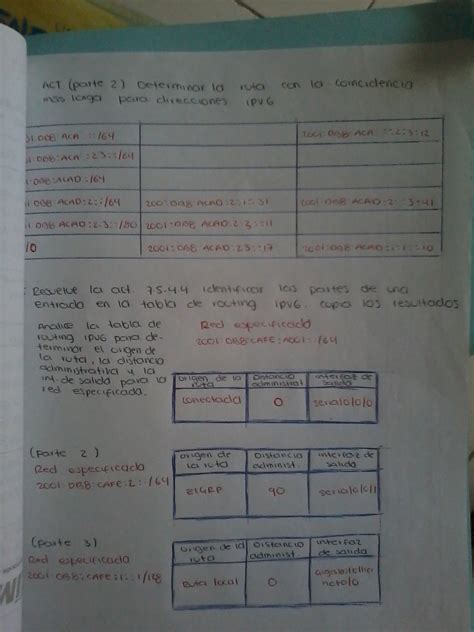 ACT (parte 2) Determinar la ruta con la coincidencia
mas larga para direcciones IPV6
01:DB8:ACA::/64 2001:DB8:ACA::2:3:12
01:DB8:ACA::23::/64
:DB8:ACAD:/64
:DB8:ACAD:2::/64 2001:DB8:ACAD:2:1::31 2001:DB8:ACAD:2::3:41
DB8:ACAD:2:3::/80 2001:DB8:ACAD:2:3::11
/0 2001:DB8:ACAD:23::17 2001:DB8:ACAD:1:1::10
Resuelve la act. 7.5.4.4 identificar las partes de una
entrada en la tabla de routing IPV6. copia los resultados
Analice la tabla de
routing IPV6 para de-
terminar el origen de
la ruta, la distancia
administrativa y la
int. de salida para la
red especificada.
Red especificada
2001:DB8:CAFE:A001::/64
origen de la Distancia administrat interfaz de salida
conectada 0 serial0/0/0
(parte 2)
Red especificada
2001:DB8:CAFE:2::/64
origen de la ruta Distancia administ. interfaz de salida
EIGRP 90 serial0/0/1
(parte 3)
Red especificada
2001:DB8:CAFE:1::1/128
origen de la ruta Distancia administ. interfaz de salida
Ruta local 0